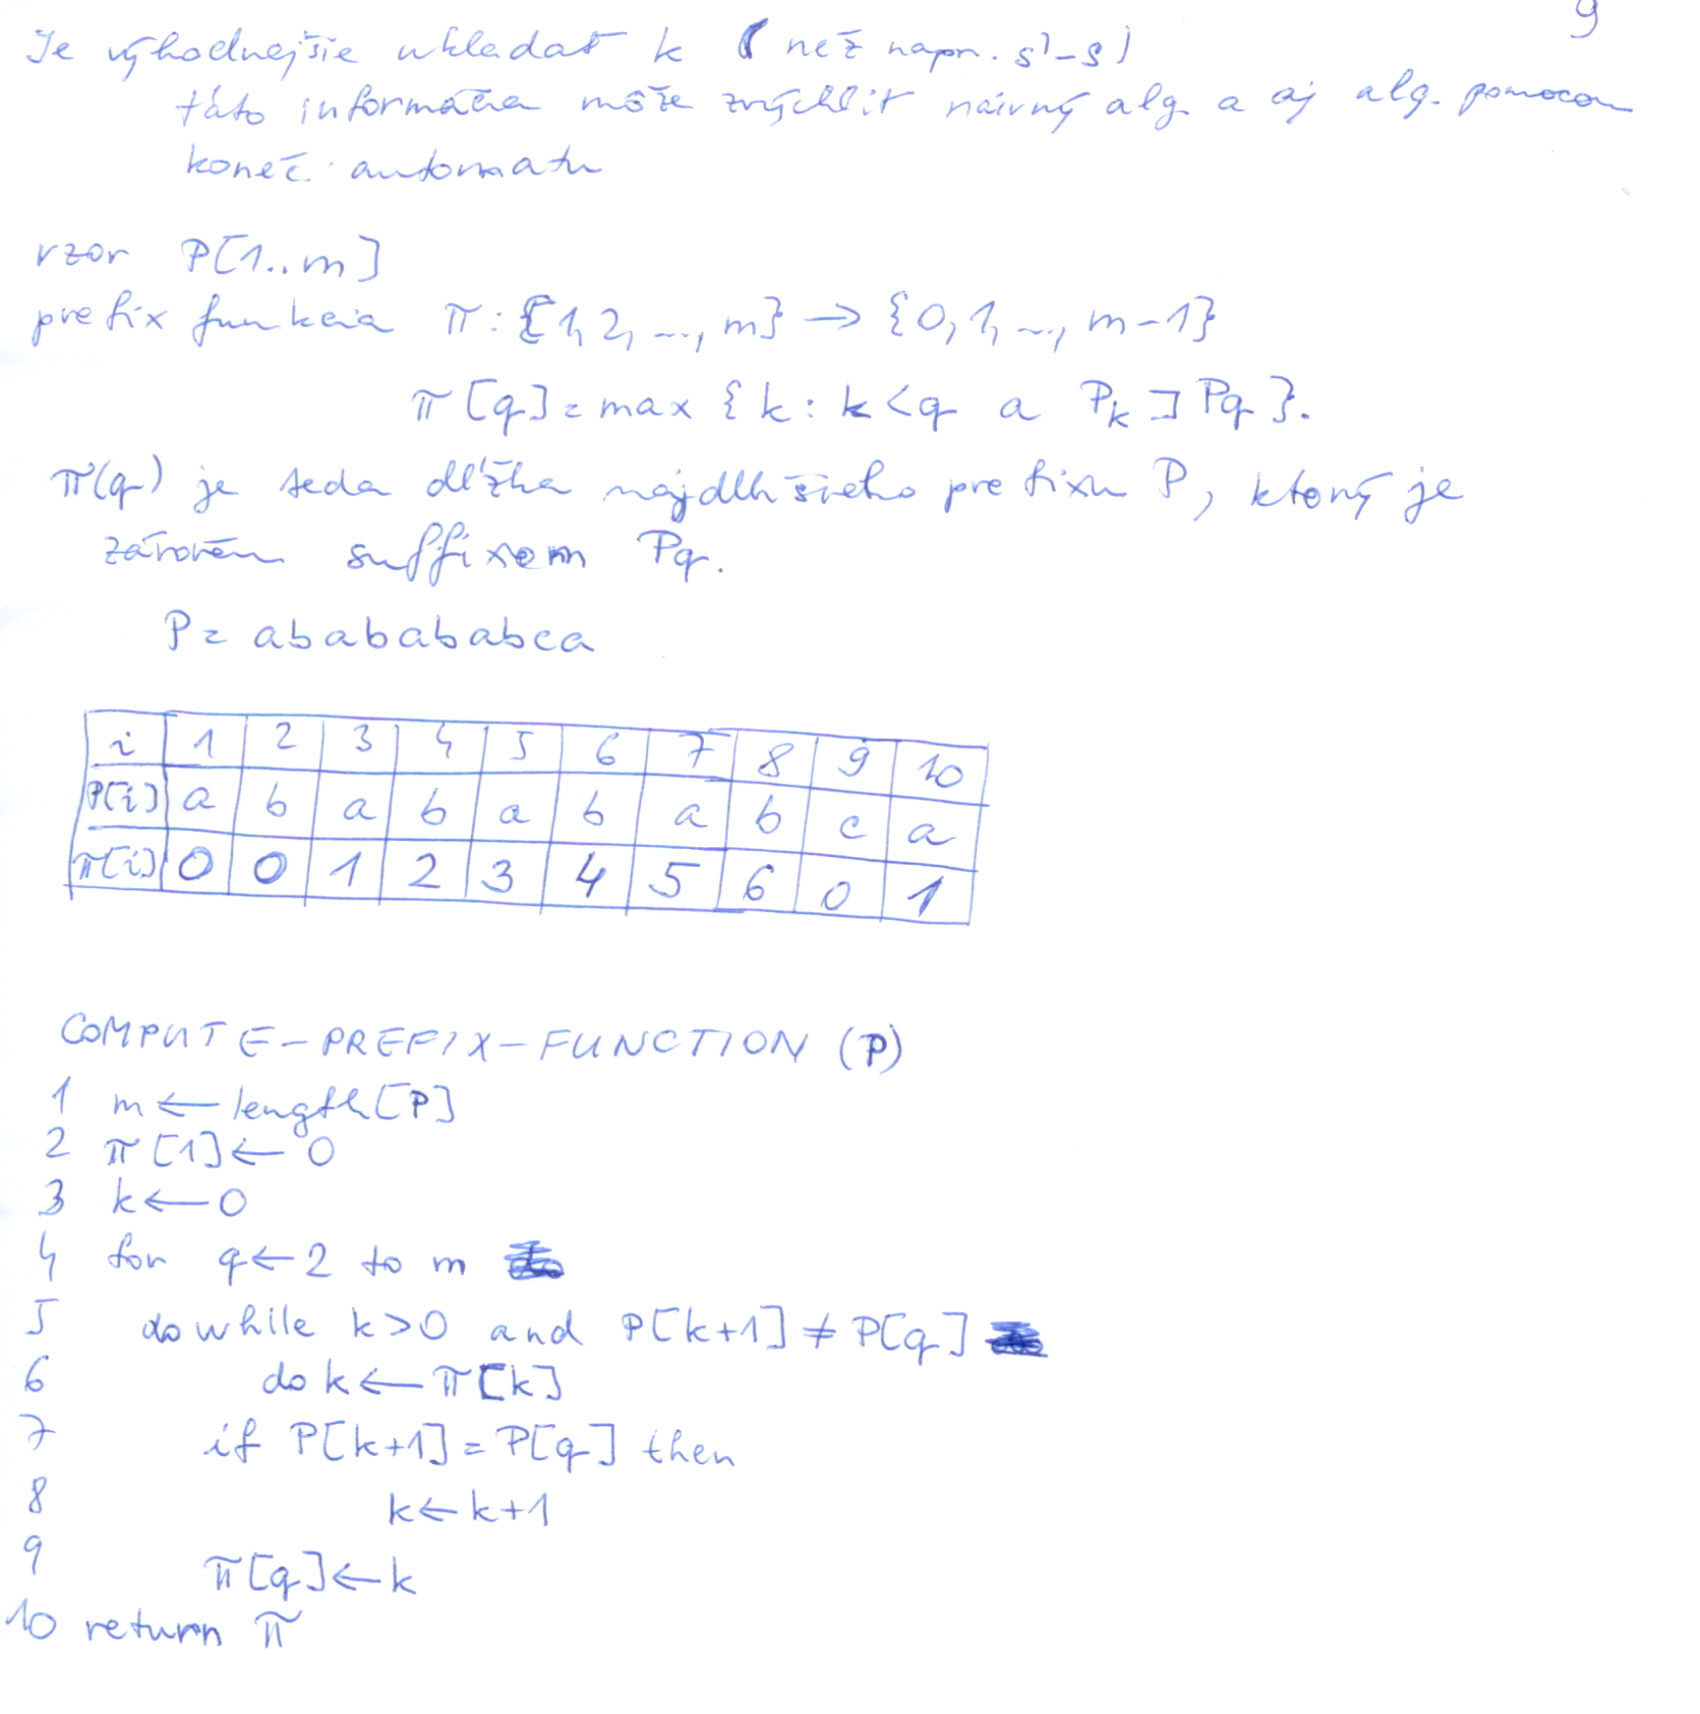 9
Je výhodnejšie ukladať k (než napr. s'-s)
táto informácia môže zrýchliť náivný alg. a aj alg. pomocou
koneč. automatu
vzor P[1..m]
prefix funkcia π: {1, 2, ..., m} → {0, 1, ..., m-1}
π[q] = max {k: k < q a Pk ⊐ Pq}.
π(q) je teda dĺžka najdlhšieho prefixu P, ktorý je
zároveň suffixem Pq.
P = ababababca
i 1 2 3 4 5 6 7 8 9 10
P[i] a b a b a b a b c a
π[i] 0 0 1 2 3 4 5 6 0 1
COMPUTE-PREFIX-FUNCTION (P)
1 m ← length[P]
2 π[1] ← 0
3 k ← 0
4 for q ← 2 to m
5 do while k > 0 and P[k+1] ≠ P[q]
6 do k ← π[k]
7 if P[k+1] = P[q] then
8 k ← k+1
9 π[q] ← k
10 return π